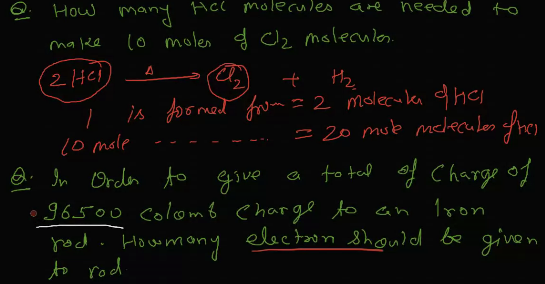 Q. How many HCl molecules are needed to
make 10 moles of Cl2 molecules.
2 HCl Δ → Cl2 + H2
1 is formed from = 2 molecules of HCl
10 mole - - - - - - - - - = 20 mole molecules of HCl
Q. In Order to give a total of charge of
96500 Colomb charge to an Iron
rod. Howmany electron should be given
to rod